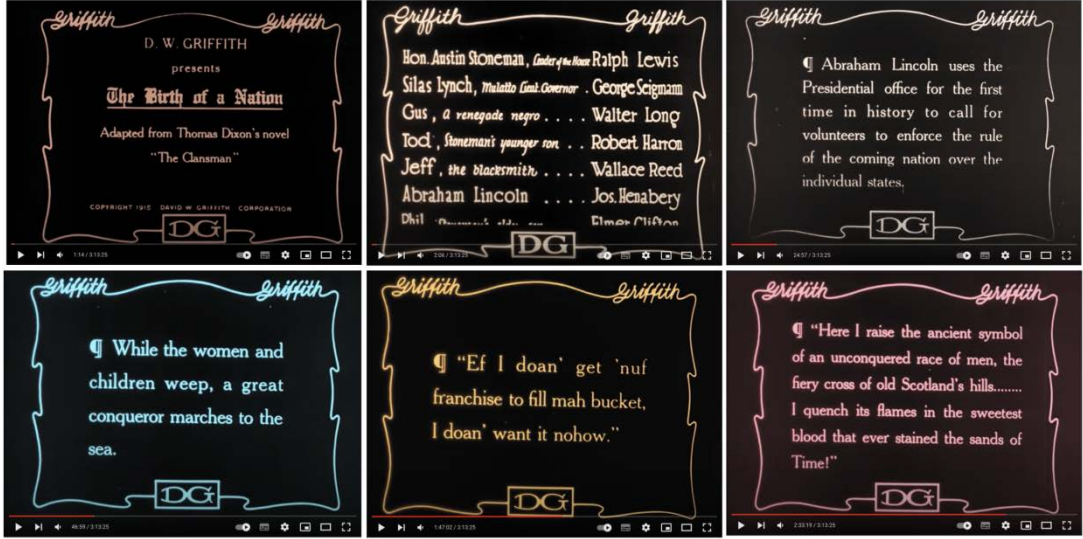 Griffith Griffith
D. W. GRIFFITH
presents
The Birth of a Nation
Adapted from Thomas Dixon's novel
"The Clansman"
COPYRIGHT 1915 DAVID W GRIFFITH CORPORATION
DG
1:14 / 3:13:25
Griffith Griffith
Hon. Austin Stoneman, Leader of the House Ralph Lewis
Silas Lynch, Mulatto Lieut. Governor . George Seigmann
Gus, a renegade negro . . . . Walter Long
Tod, Stoneman's younger son . . Robert Harron
Jeff, the blacksmith . . . . Wallace Reed
Abraham Lincoln . . . . Jos. Henabery
Phil Elmer Clifton
DG
2:06 / 3:13:25
Griffith Griffith
¶ Abraham Lincoln uses the
Presidential office for the first
time in history to call for
volunteers to enforce the rule
of the coming nation over the
individual states.
DG
24:57 / 3:13:25
Griffith Griffith
¶ While the women and
children weep, a great
conqueror marches to the
sea.
DG
46:59 / 3:13:25
Griffith Griffith
¶ "Ef I doan' get 'nuf
franchise to fill mah bucket,
I doan' want it nohow."
DG
1:47:02 / 3:13:25
Griffith Griffith
¶ "Here I raise the ancient symbol
of an unconquered race of men, the
fiery cross of old Scotland's hills........
I quench its flames in the sweetest
blood that ever stained the sands of
Time!"
DG
2:33:19 / 3:13:25